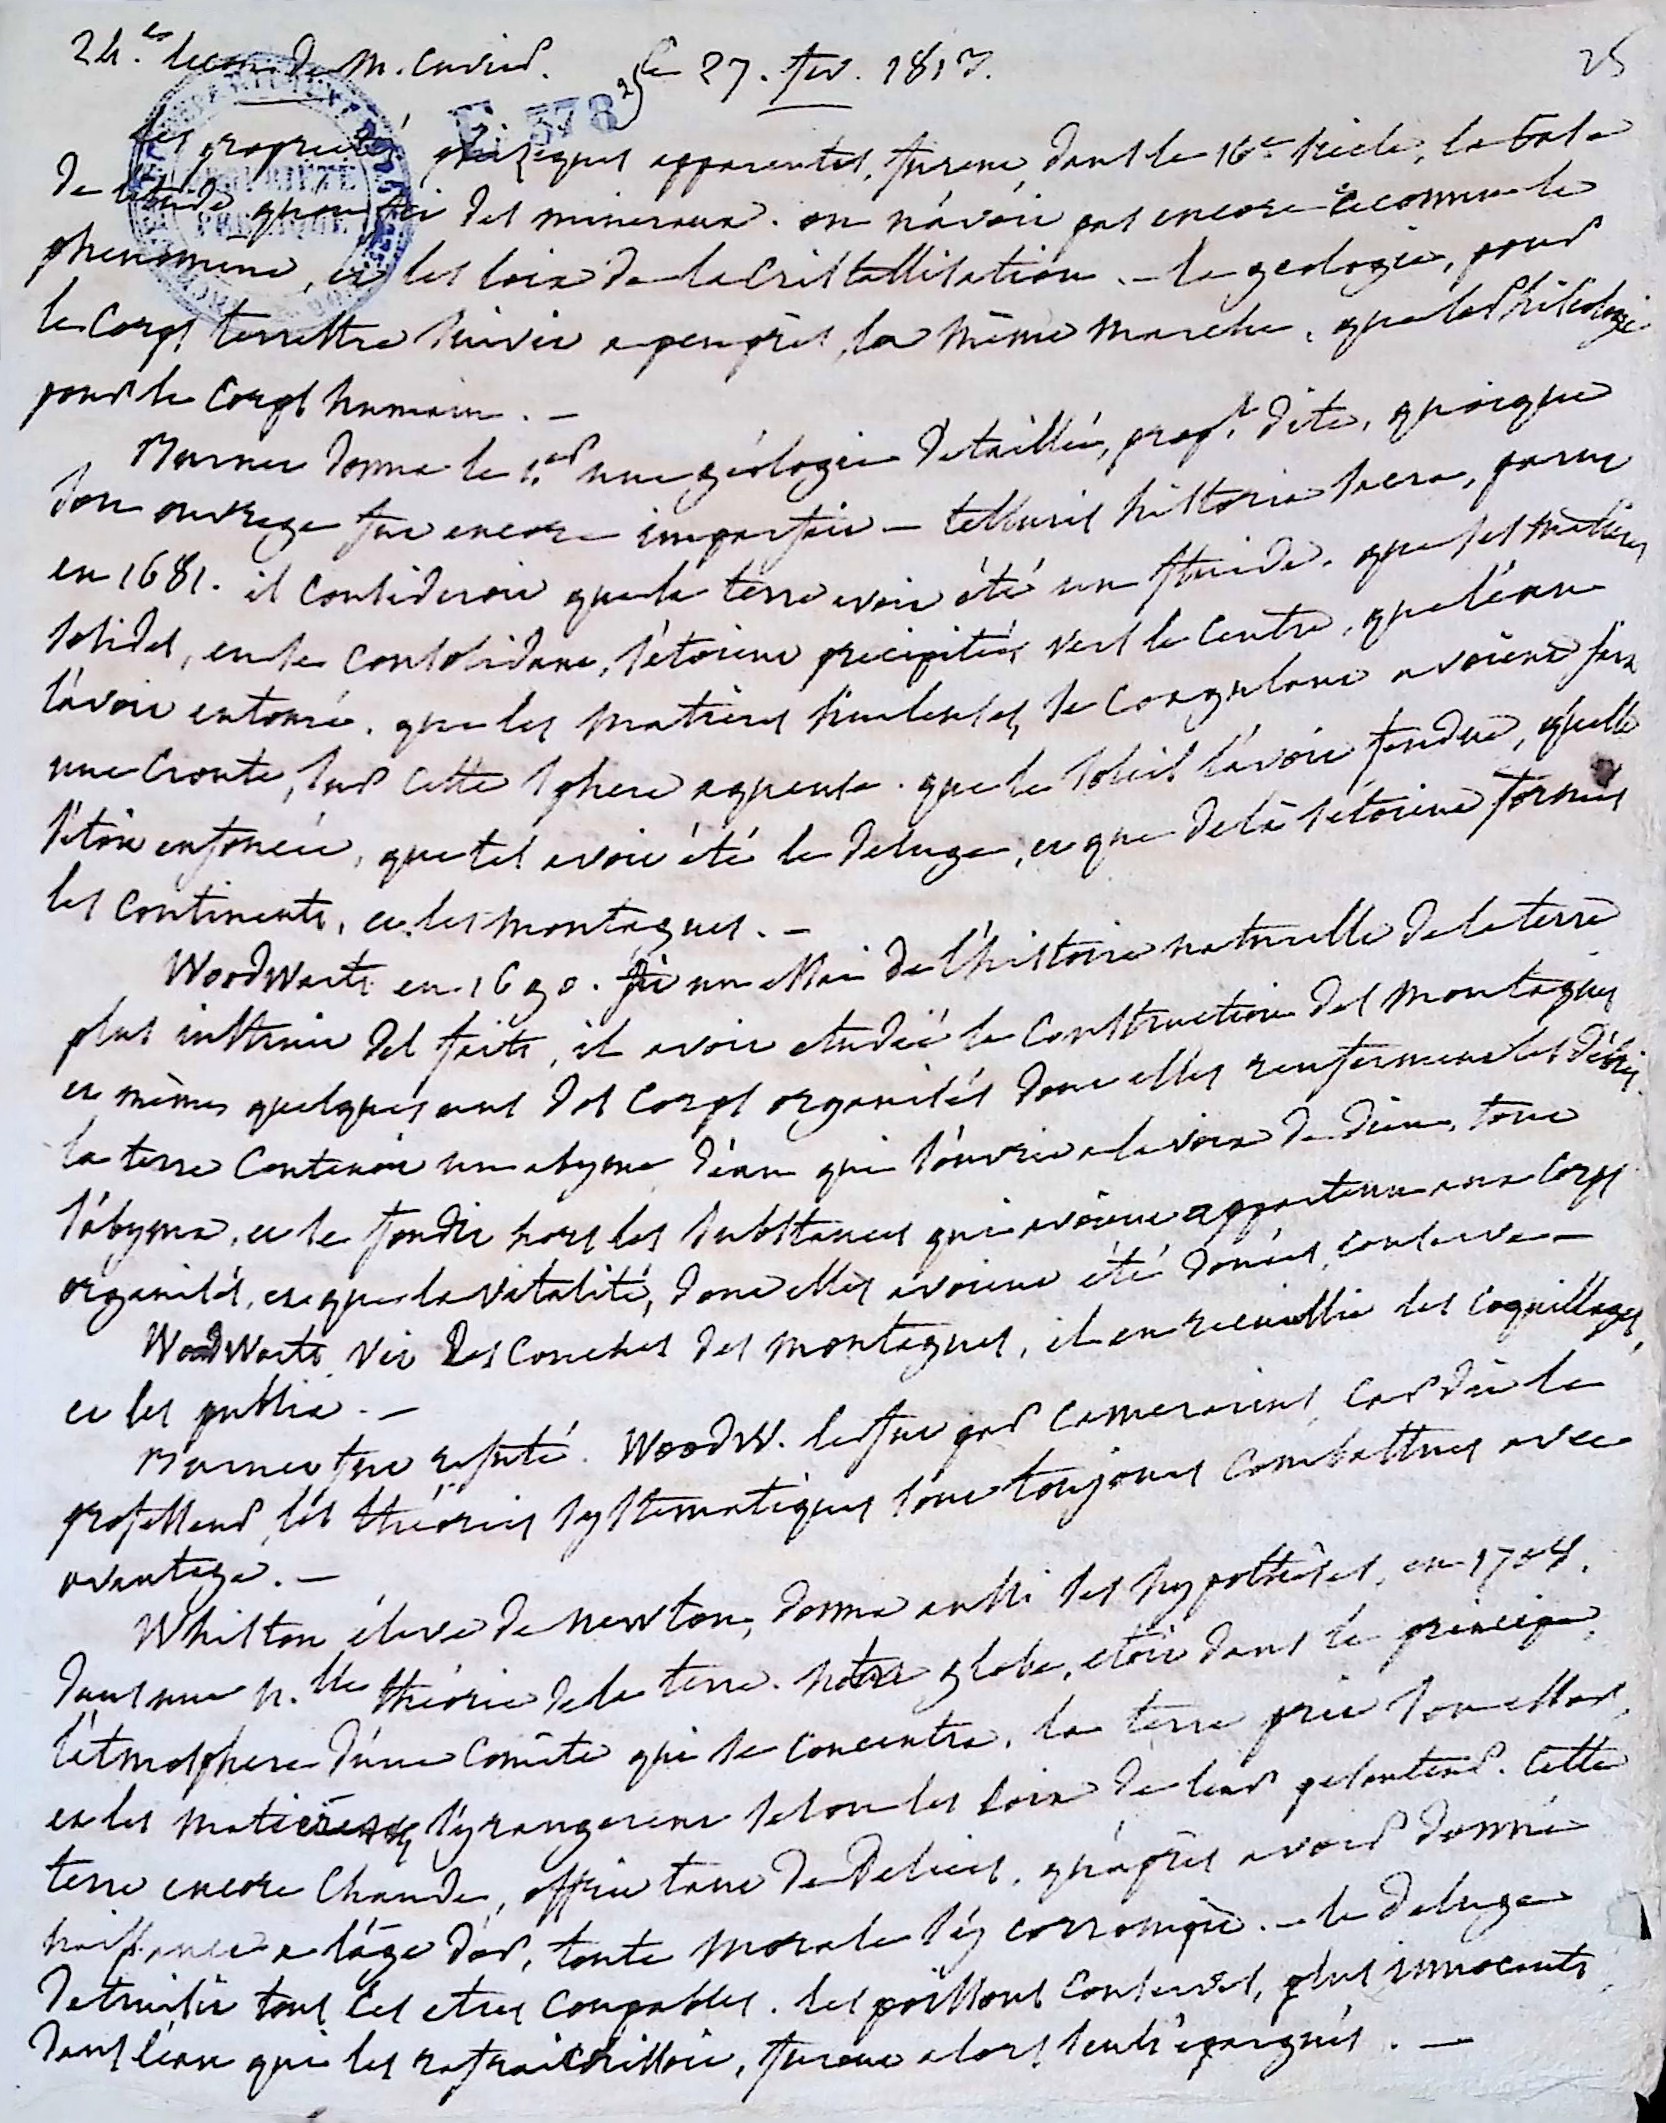 24.e leçon de M. Cuvier. le 27. fev. 1817.
25
E 378
25
PROPRIÉTÉ PUBLIQUE
les propriétés phisiques apparentes, furent, dans le 16e siecle, la base
de l'étude qu'on fit des mineraux. on n'avoit pas encore reconnu le
phenomene, et les loix de la cristallisation. - la geologie, pour
le corps terrestre suivit a peu près, la même marche, que la phisiologie
pour le corps humain. -
Burnet donna le 1.er une géologie détaillée, prop.t dite, quoique
son ouvrage fut encore imparfait - telluris historia sacra, parut
en 1681. il consideroit que la terre avoit été un fluide. que les matieres
solides, en se consolidant, s'etoient precipitées vers le centre, que l'eau
l'avoit entouré. que les matieres huileuses, se coagulant avoient fait
une croute, sur cette sphere aqueuse. que le soleil l'avoit fendue, qu'elle
s'étoit enfoncée, que tel avoit été le deluge, et que de là s'étoient formés
les continents, et les montagnes. -
Woodwart en 1690. fit un essai de l'histoire naturelle de la terre
plus instruit des faits, il avoit etudié la construction des montagnes
et mêmes quelques uns des corps organisés dont elles renferment les débris.
la terre contenoit un abyme d'eau qui s'ouvrit a la voix de dieu, tout
s'abyma, et se fondit hors les substances qui avoient appartenu aux corps
organisés, et que la vitalité, dont elles avoient été donées, conserva -
Woodwart vit les couches des montagnes, il en recueillit les coquillages,
et les publia. -
Burnet fut refuté. Woodw. le fut par Camerarius, car dit le
professeur, les théories systematiques sont toujours combattues avec
avantage. -
Whilston éleve de newton, donna aussi ses hypothèses, en 1708.
dans une n.lle théorie de la terre. notre globe, etoit dans le principe,
l'atmosphere d'une comète qui se concentra, la terre prit son essor,
et les matieres s'y rangerent selon les loix de leur pesanteur. cette
terre encore chaude, offrit tant de delices, qu'après avoir donné
naissance a l'âge d'or, toute morale s'y corrompit. - le deluge
detruisit tous les etres coupables. les poissons conservés, plus innocents
dans l'eau qui les rafraichissoit, furent alors seuls épargnés. -